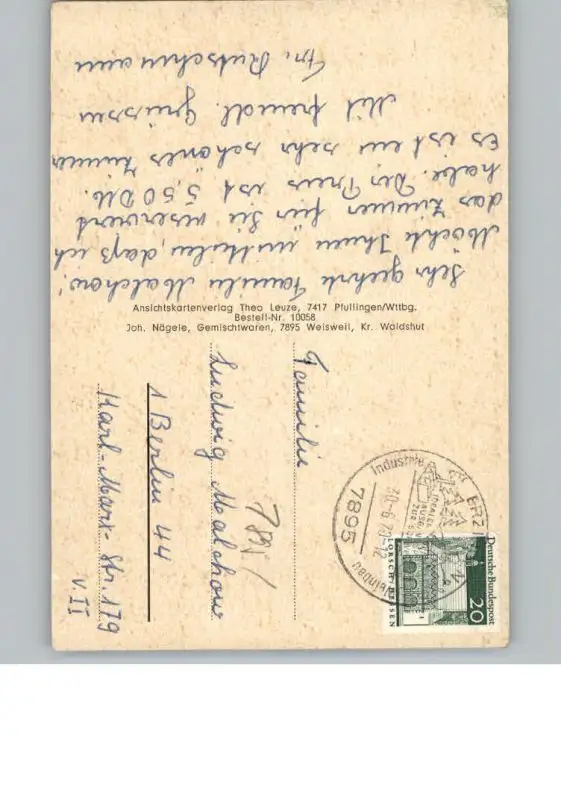 Sehr geehrte Familie Malchow!
Möchte Ihnen mitteilen, daß ich
das Zimmer für Sie reserviert
habe. Der Preis ist 5,50 DM.
Es ist ein sehr schönes Zimmer
Mit freundl. Grüssen
Fr. Rutschmann
Ansichtskartenverlag Theo Leuze, 7417 Pfullingen/Wttbg.
Bestell-Nr. 10058
Joh. Nägele, Gemischtwaren, 7895 Weisweil, Kr. Waldshut
Familie
Ludwig Malchow
1 Berlin 44
Karl-Marx-Str. 179
v. II
Deutsche Bundespost
20
LORSCH · HESSEN
7895
ERZI
Industrie
Weinbau